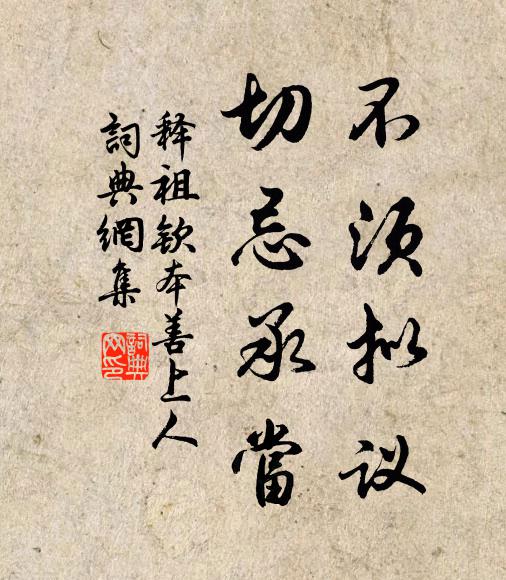 不须拟议
切忌承當
释祖钦本善上人
詞典網集
詞典
网印